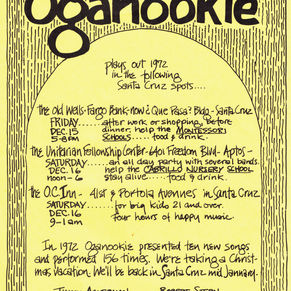 Oganookie
plays out 1972
in the following
Santa Cruz Spots....
The old Wells-Fargo Bank-now ¿Que Pasa? Bldg - Santa Cruz
FRIDAY........after work or shopping, before
DEC. 15 dinner, help the MONTESSORI
5-8pm SCHOOLS.....food & drink.
The Unitarian Fellowship Center-6401 Freedom Blvd - Aptos -
SATURDAY......an all day party with several bands.
DEC. 16 help the CABRILLO NURSERY SCHOOL
noon-6 stay alive.....food & drink
The O.C. Inn - 41st & Portola Avenues in Santa Cruz
SATURDAY.......for big kids 21 and over.
DEC. 16 four hours of happy music.
9-1am
In 1972 Oganookie presented ten new songs
and performed 156 times. We're taking a Christ-
mas Vacation. We'll be back in Santa Cruz mid January.